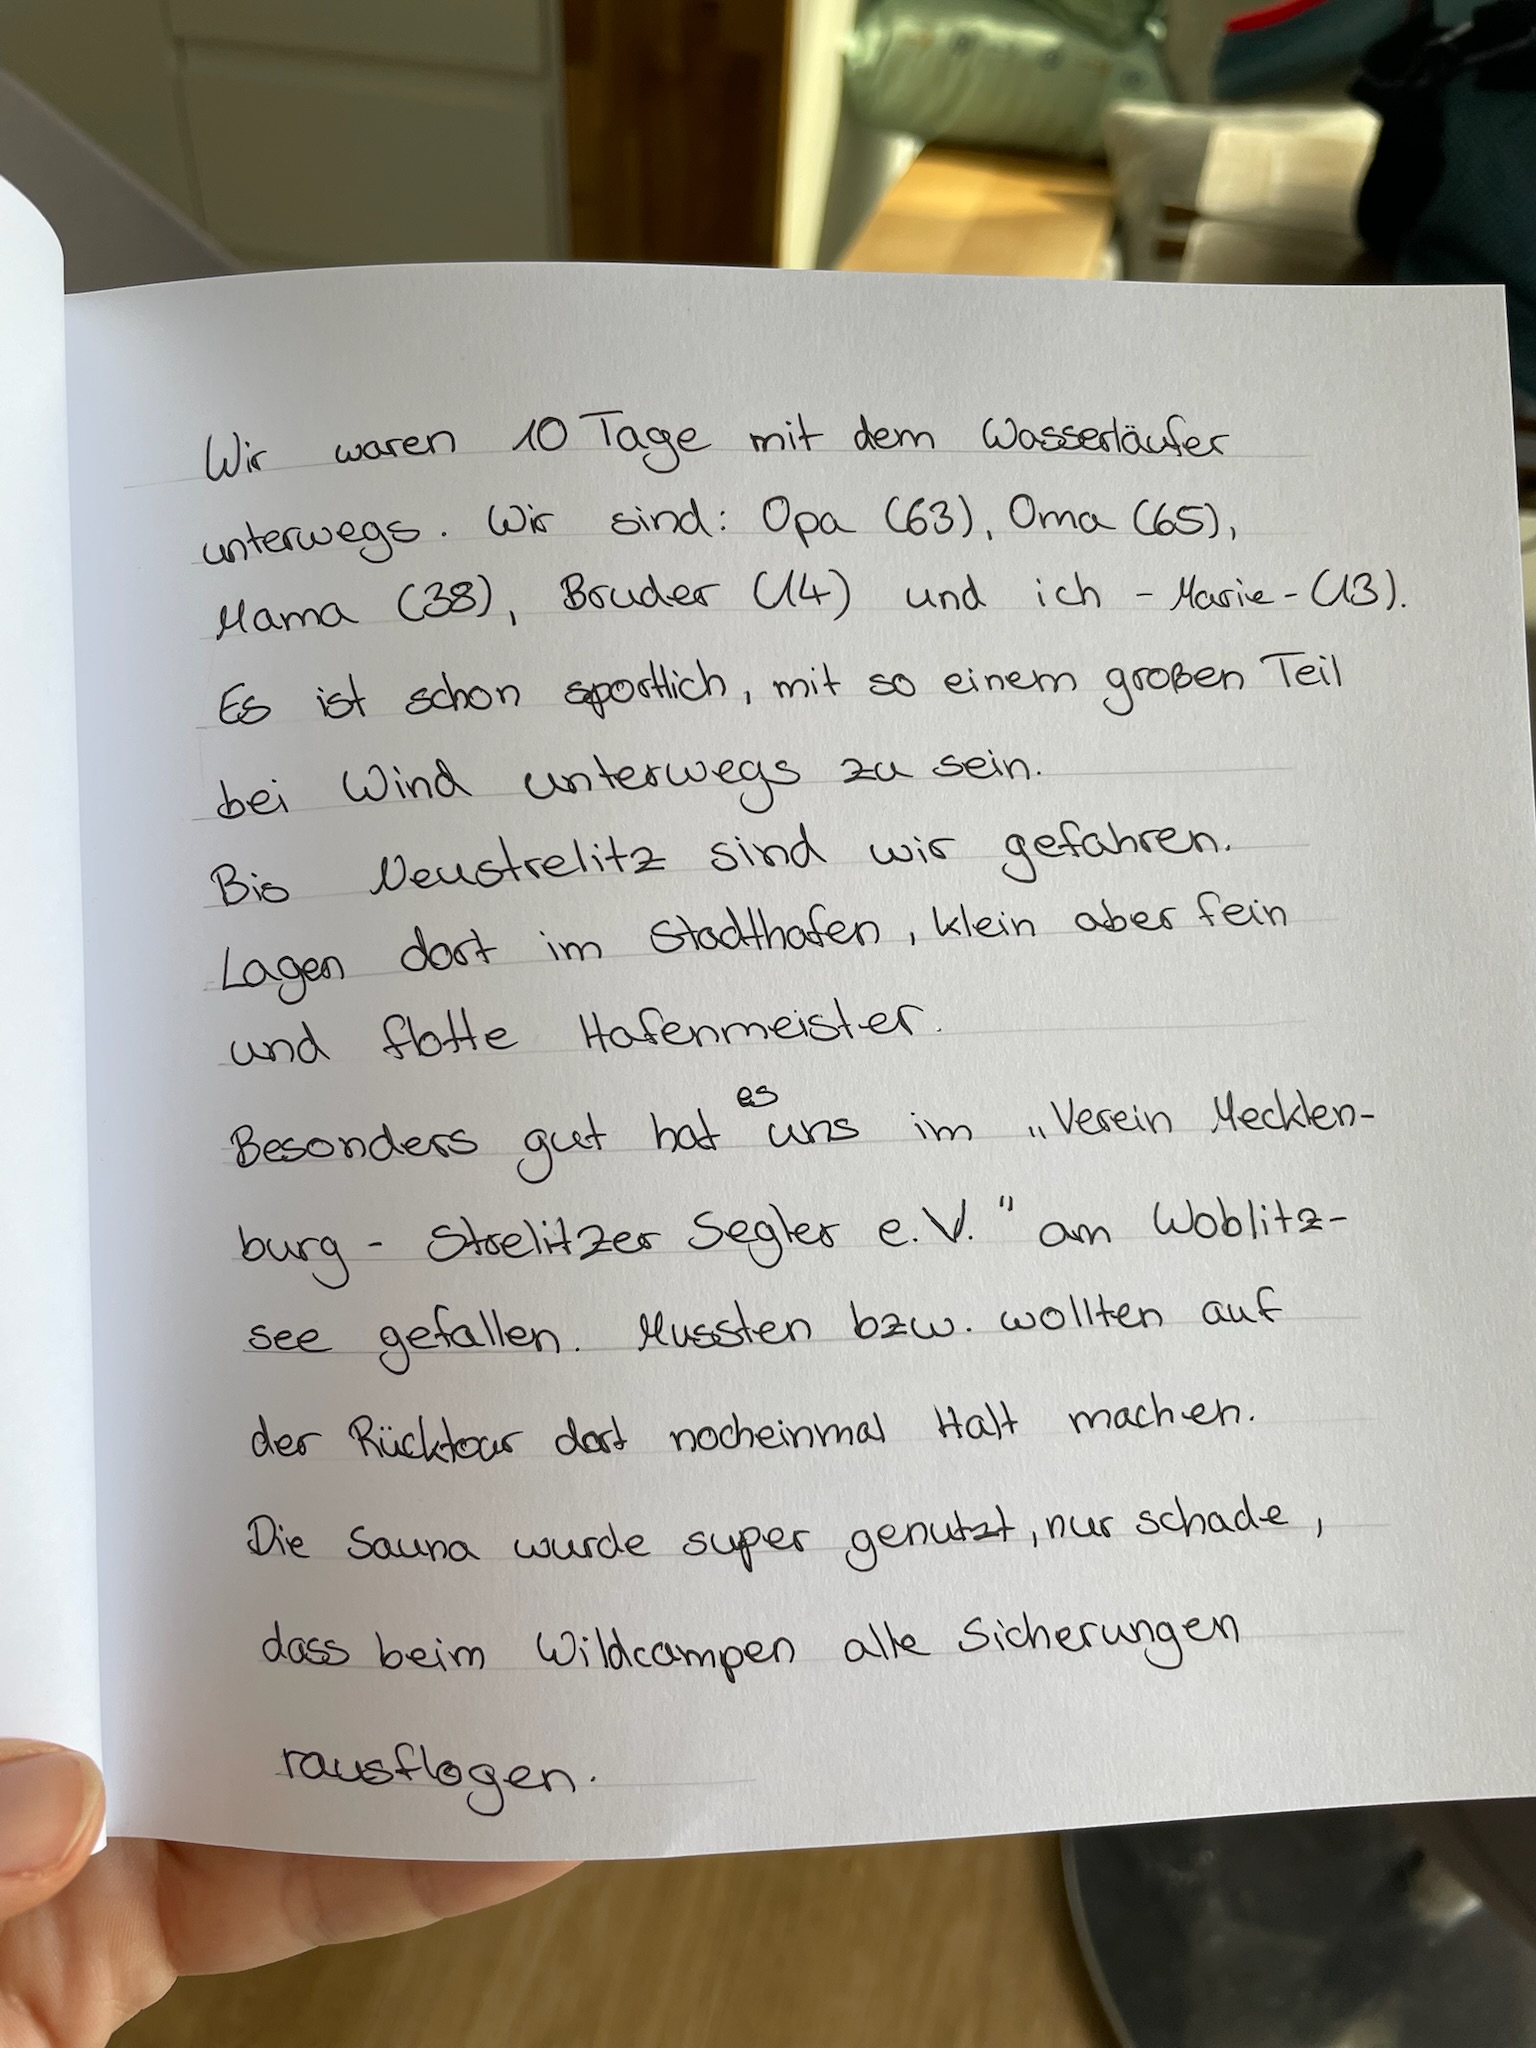 Wir waren 10 Tage mit dem Wasserläufer
unterwegs. Wir sind: Opa (63), Oma (65),
Mama (38), Bruder (14) und ich - Marie - (13).
Es ist schon sportlich, mit so einem großen Teil
bei Wind unterwegs zu sein.
Bis Neustrelitz sind wir gefahren.
Lagen dort im Stadthafen, klein aber fein
und flotte Hafenmeister.
Besonders gut hat es uns im „Verein Mecklen-
burg - Strelitzer Segler e.V." am Woblitz-
see gefallen. Mussten bzw. wollten auf
der Rücktour dort nocheinmal Halt machen.
Die Sauna wurde super genutzt, nur schade,
dass beim Wildcampen alle Sicherungen
rausflogen.